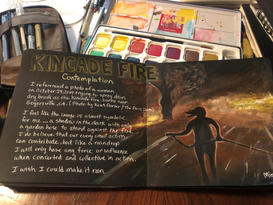 KINCADE FIRE
Contemplation
I referenced a photo of a woman
on October 24, 2019 trying to spray down
dry brush as the Kincade Fire burns near
Geyserville, CA. (Photo by
I feel like the image is almost symbolic
for me... a shadow in the dark with only
a garden hose to stand against the fire.
I do believe that our every small action
can contribute... but like a raindrop
I will only have any force or influence
when concerted and collective in action.
I wish I could make it rain.